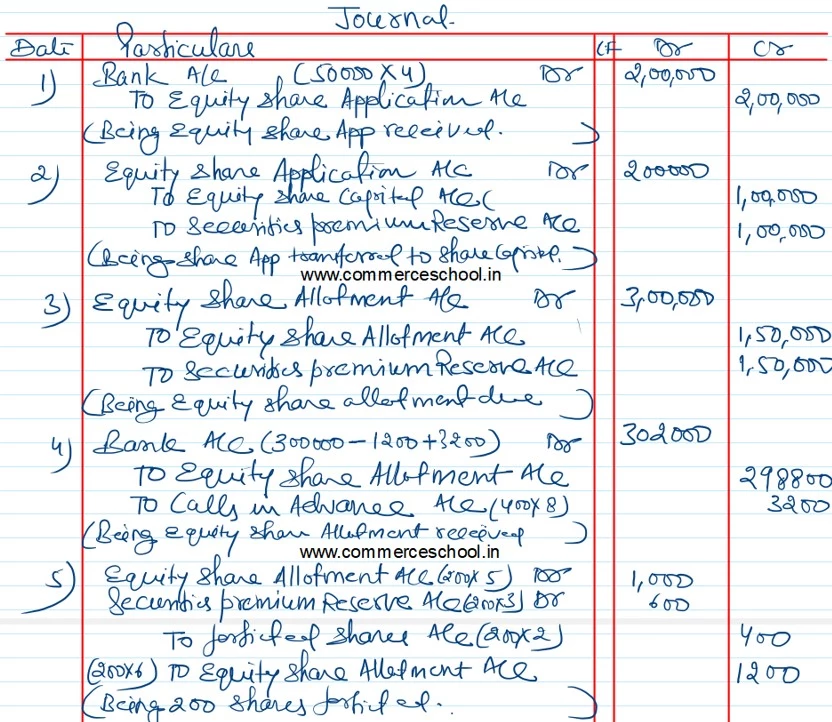 Journal.
Date Particulars LF Dr Cr
1) Bank A/c (50000 X 4) Dr 2,00,000
To Equity Share Application A/c 2,00,000
(Being Equity Share App received. )
2) Equity Share Application A/c Dr 200000
To Equity Share Capital A/c ( 1,00,000
To Securities premium Reserve A/c 1,00,000
(Being Share App transferred to Share Capital.)
www.commerceschool.in
3) Equity Share Allotment A/c Dr 3,00,000
To Equity Share Allotment A/c 1,50,000
To Securities premium Reserve A/c 1,50,000
(Being Equity Share allotment due )
4) Bank A/c (300000 - 1200 + 3200) Dr 302000
To Equity Share Allotment A/c 298800
To Calls in Advance A/c (400 X 8) 3200
(Being Equity Share Allotment received )
www.commerceschool.in
5) Equity Share Allotment A/c (200 X 5) Dr 1,000
Securities premium Reserve A/c (200X3) Dr 600
To forfieted Shares A/c (200X2) 400
(200X6) To Equity Share Allotment A/c 1200
(Being 200 Shares forfieted.. )